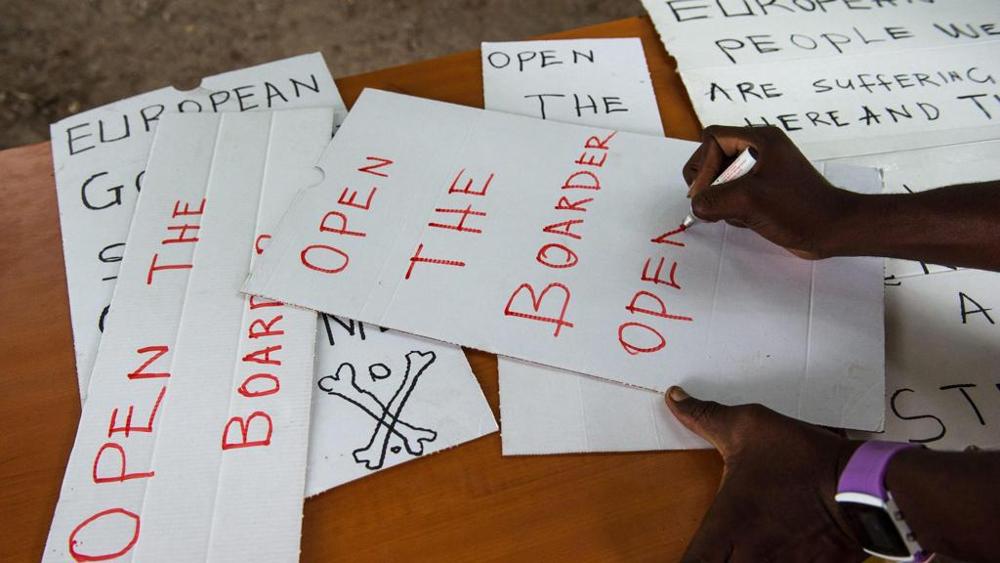 EUROPEAN
OPEN
THE
EUROPEAN
PEOPLE WE
ARE SUFFERING
HERE AND
OPEN
THE
BOARDER
OPEN
OPEN THE
BOARD